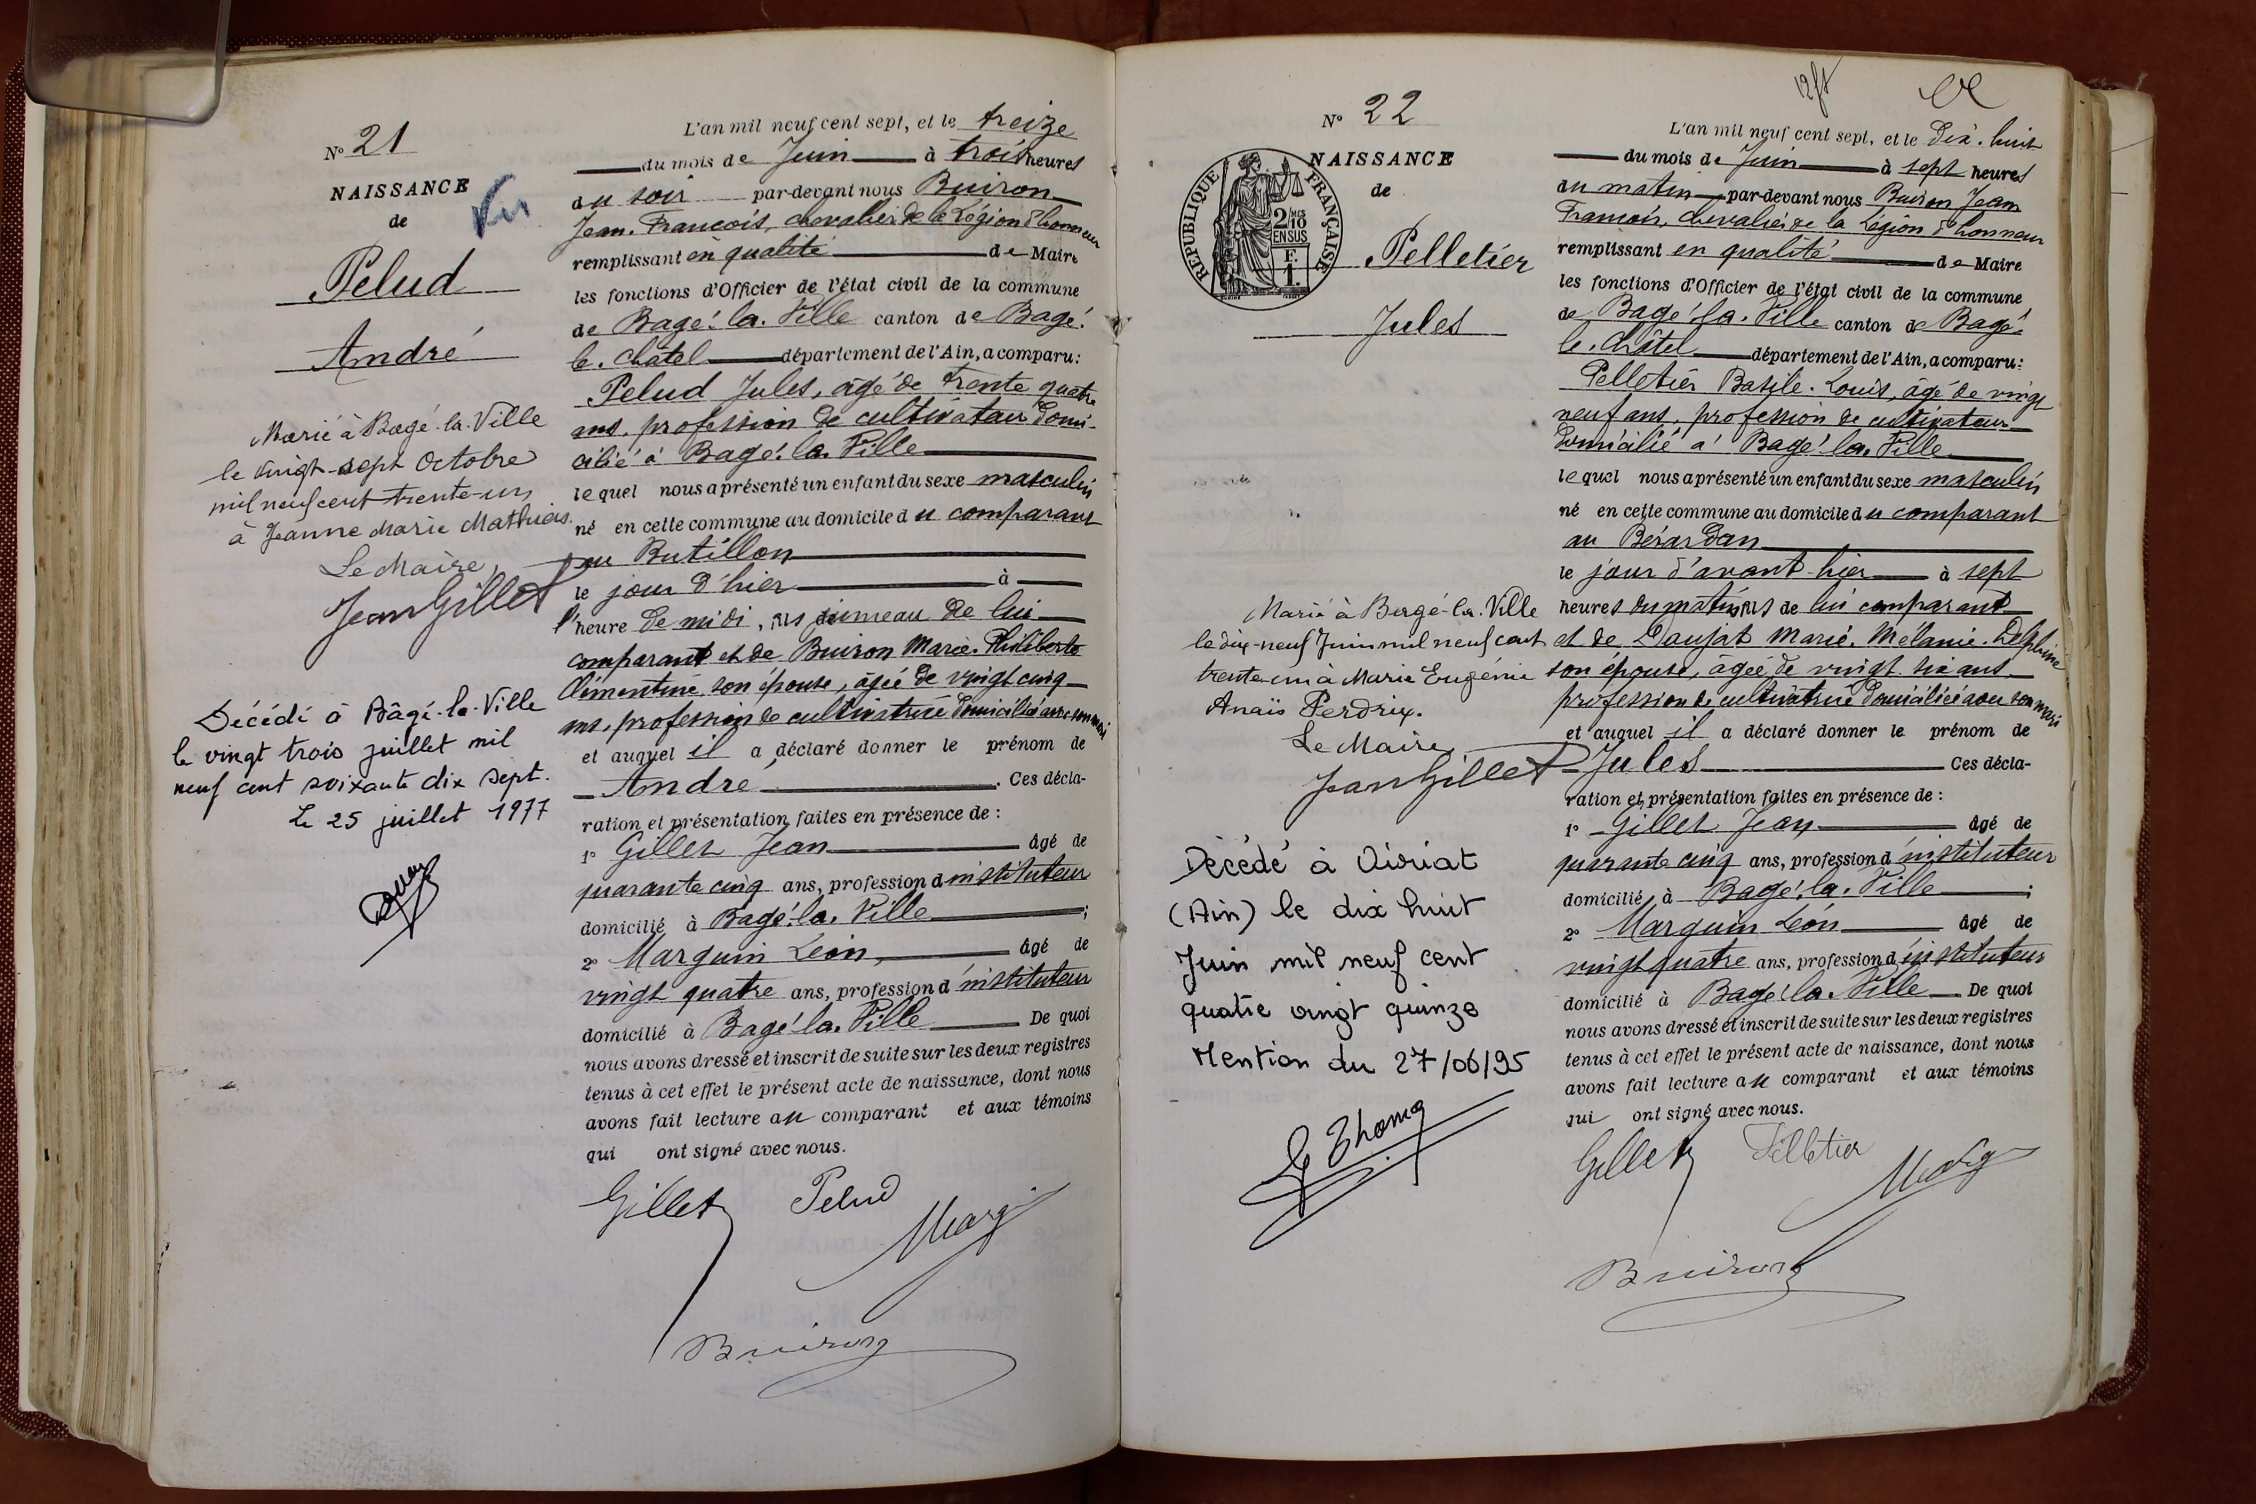 N° 21
NAISSANCE
de
Vu
Pelud
André
Marié à Bagé-la-Ville
le vingt-sept Octobre
mil neuf cent trente-un
à Jeanne Marie Mathias.
Le Maire,
Jean Gillet
Décédé à Bâgé-la-Ville
le vingt trois juillet mil
neuf cent soixante dix sept.
Le 25 juillet 1977
L'an mil neuf cent sept, et le treize
du mois de Juin à trois heures
du soir par-devant nous Buiron
Jean-François, chevalier de la Légion d'honneur
remplissant en qualité de Maire
les fonctions d'Officier de l'état civil de la commune
de Bagé-la-Ville canton de Bagé-
le-Châtel département de l'Ain, a comparu:
Pelud Jules, âgé de trente quatre
ans, profession de cultivateur domi-
cilié à Bagé-la-Ville
lequel nous a présenté un enfant du sexe masculin
né en cette commune au domicile du comparant
au Butillon
le jour d'hier à
l'heure de midi, fils jumeau de lui
comparant et de Buiron Marie-Philiberte
Clémentine son épouse, âgée de vingt cinq
ans, profession de cultivatrice domiciliée avec son mari
et auquel il a déclaré donner le prénom de
André. Ces décla-
ration et présentation faites en présence de :
1° Gillet Jean âgé de
quarante cinq ans, profession d'instituteur
domicilié à Bagé-la-Ville ;
2° Marguin Léon, âgé de
vingt quatre ans, profession d'instituteur
domicilié à Bagé-la-Ville De quoi
nous avons dressé et inscrit de suite sur les deux registres
tenus à cet effet le présent acte de naissance, dont nous
avons fait lecture au comparant et aux témoins
qui ont signé avec nous.
Gillet Pelud
Marg
Buiron
N° 22
NAISSANCE
de
RÉPUBLIQUE FRANÇAISE
2/10 MES
EN SUS
F.
1.
Pelletier
Jules
Marié à Bagé-la-Ville
le dix-neuf Juin mil neuf cent
trente-un à Marie Eugénie
Anaïs Perdrix.
Le Maire
Jean Gillet
Décédé à Viriat
(Ain) le dix huit
Juin mil neuf cent
quatre vingt quinze
Mention du 27/06/95
L'an mil neuf cent sept, et le dix-huit
du mois de Juin à sept heures
du matin par-devant nous Buiron Jean
François, chevalier de la Légion d'honneur
remplissant en qualité de Maire
les fonctions d'Officier de l'état civil de la commune
de Bagé-la-Ville canton de Bagé-
le-Châtel département de l'Ain, a comparu:
Pelletier Basile-Louis, âgé de vingt
neuf ans, profession de cultivateur
domicilié à Bagé-la-Ville
lequel nous a présenté un enfant du sexe masculin
né en cette commune au domicile du comparant
au Bérardan
le jour d'avant-hier à sept
heures du matin, fils de lui comparant
et de Daujat Marie-Mélanie-Delphine
son épouse, âgée de vingt six ans
profession de cultivatrice domiciliée avec son mari
et auquel il a déclaré donner le prénom de
Jules Ces décla-
ration et présentation faites en présence de :
1° Gillet Jean âgé de
quarante cinq ans, profession d'instituteur
domicilié à Bagé-la-Ville ;
2° Marguin Léon âgé de
vingt quatre ans, profession d'instituteur
domicilié à Bagé-la-Ville De quoi
nous avons dressé et inscrit de suite sur les deux registres
tenus à cet effet le présent acte de naissance, dont nous
avons fait lecture au comparant et aux témoins
qui ont signé avec nous.
Gillet Pelletier
Marg
Buiron